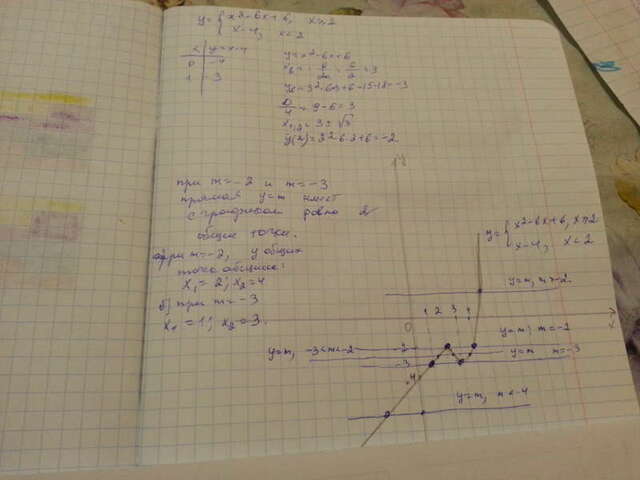 y = { x² - 6x + 6, x ≥ 2
x - 4, x < 2
x | y = x - 4
0 | -4
1 | -3
y = x² - 6x + 6
= 3
y(2) = 2² - 6·2 + 6 = -2
D/4 = 9 - 6 = 3
x₁,₂ = 3 ± √3
при m = -2 и m = -3
прямая y = m имеет
с графиком ровно 2
общие точки.
при m = -2, у общих
точек абсциссы:
x₁ = 2; x₂ = 4
б) при m = -3
x₁ = 1; x₂ = 3.
y
y = { x² - 6x + 6, x ≥ 2
x - 4, x < 2
y = m, m > -2
1 2 3 4
0
x
y = m, -3 < m < -2
-2
y = m, m = -2
-3
y = m m = -3
-4
y = m, m < -4